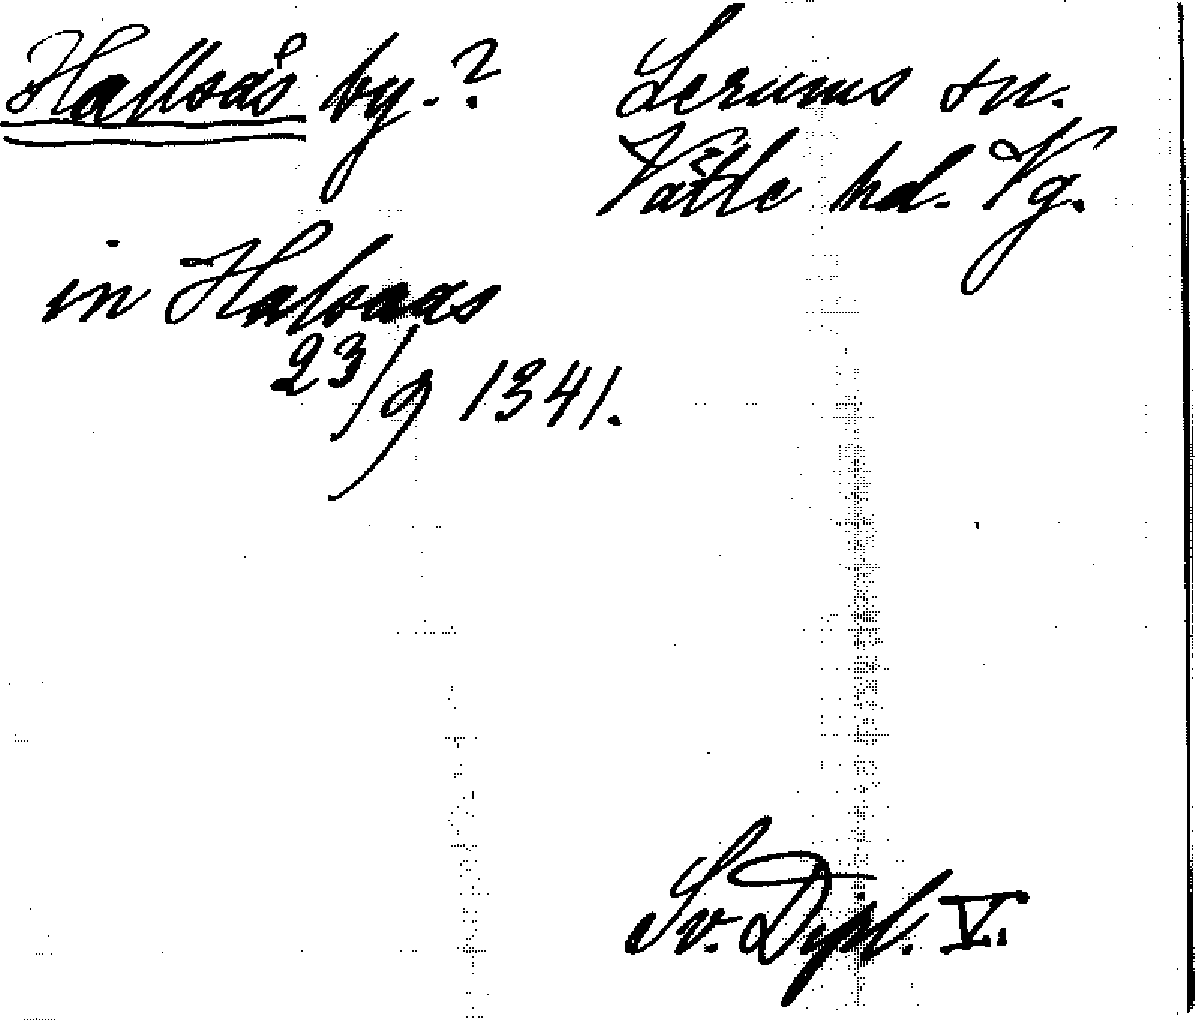 Hallsås by.?
Lerums sn.
Vättle hd. Vg.
in Halsaas
23/9 1341.
Sv. Dipl. V.